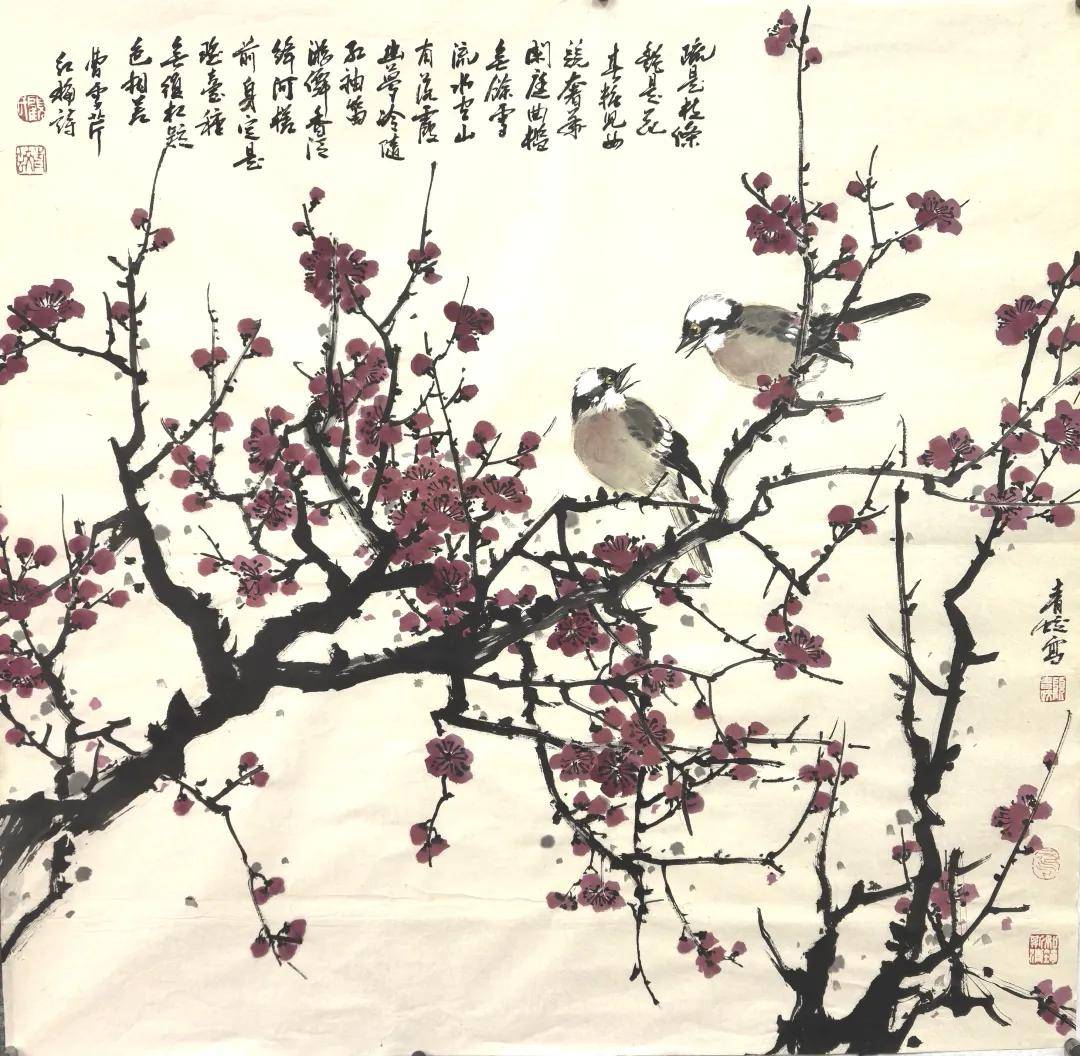 疏是枝條
艷是花
春粧兒女
競奢華
閑庭曲檻
無餘雪
流水空山
有落霞
幽夢冷隨
紅袖笛
游僊香泛
絳河槎
前身定是
瑤臺種
無復相疑
色相差
曹雪芹
紅梅詩
寫